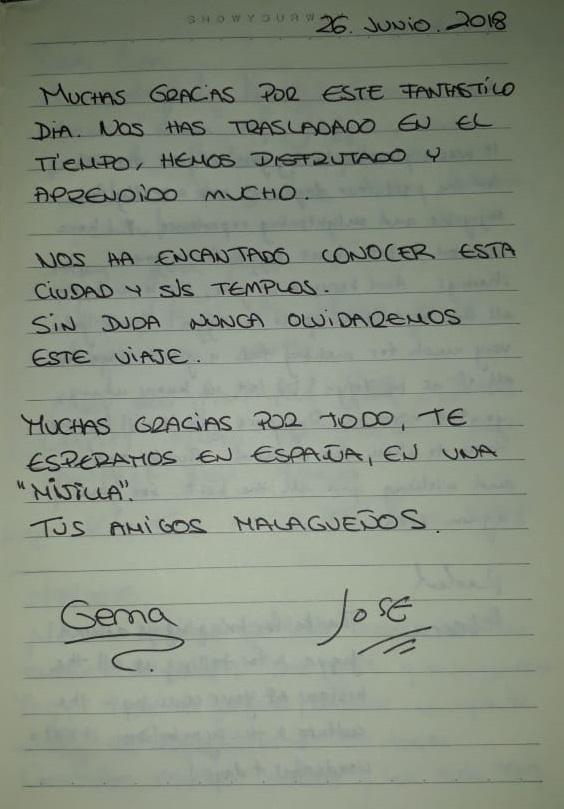 SHOWYOURW
26. JUNIO. 2018
MUCHAS GRACIAS POR ESTE FANTASTICO
DIA. NOS HAS TRASLADADO EN EL
TIEMPO, HEMOS DISFRUTADO Y
APRENDIDO MUCHO.
NOS HA ENCANTADO CONOCER ESTA
CIUDAD Y SUS TEMPLOS.
SIN DUDA NUNCA OLVIDAREMOS
ESTE VIAJE.
MUCHAS GRACIAS POR TODO, TE
ESPERAMOS EN ESPAÑA, EN UNA
TUS AMIGOS MALAGUEÑOS.
Gema JOSE